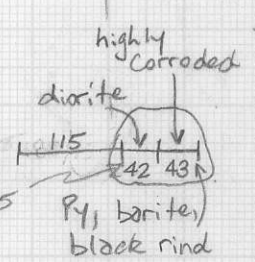 highly
corroded
diorite
115
42 43
5
Py, barite,
black rind